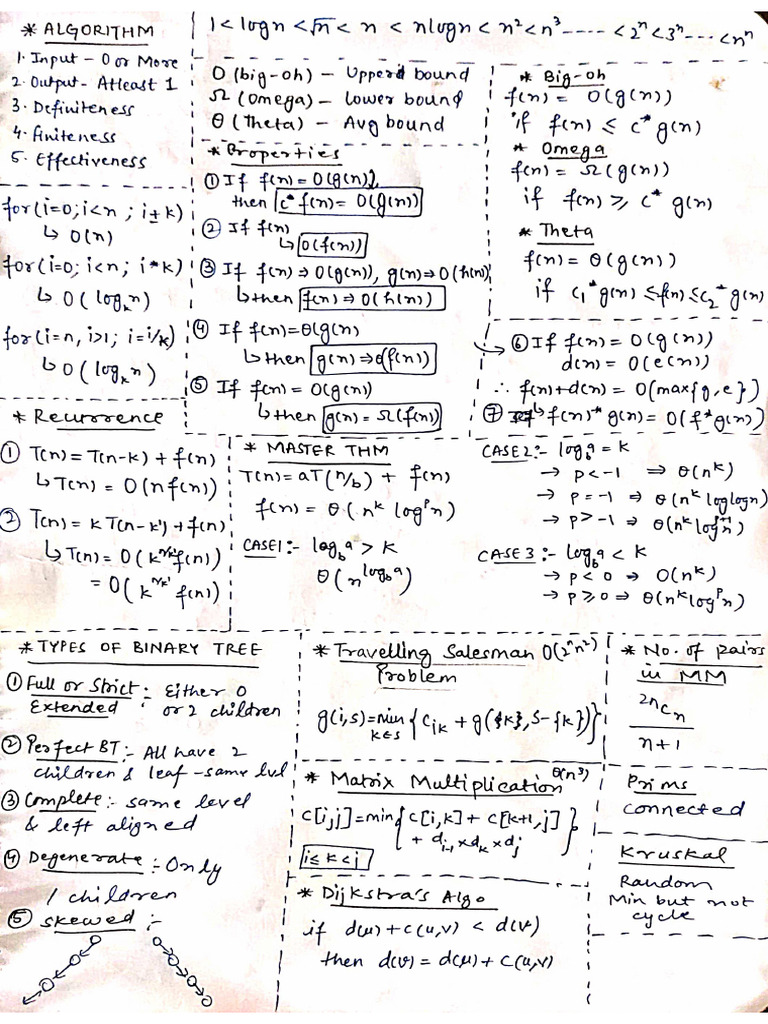 * ALGORITHM
1. Input - 0 or More
2. Output - Atleast 1
3. Definiteness
4. finiteness
5. Effectiveness
1 < logn < √n < n < nlogn < n² < n³ ----- < 2ⁿ < 3ⁿ ... < nⁿ
O (big-oh) - Upper bound
Ω (Omega) - lower bound
θ (Theta) - Avg bound
* Big-oh
f(n) = O(g(n))
if f(n) ≤ c* g(n)
* Omega
f(n) = Ω(g(n))
if f(n) ≥ c* g(n)
* Theta
f(n) = θ(g(n))
if c₁* g(n) ≤ f(n) ≤ c₂* g(n)
* Properties
① If f(n) = O(g(n)),
then c* f(n) = O(g(n))
② If f(n)
↳ O(f(n))
③ If f(n) ⇒ O(g(n)), g(n) ⇒ O(h(n)
↳ then f(n) ⇒ O(h(n))
④ If f(n) = θ(g(n)
↳ then g(n) ⇒ θ(f(n))
⑤ If f(n) = O(g(n))
↳ then g(n) = Ω(f(n))
⑥ If f(n) = O(g(n))
d(n) = O(e(n))
∴ f(n) + d(n) = O(max{g,e})
⑦ f(n)* g(n) = O(f* g(n))
for(i=0; i<n ; i± k)
↳ O(n)
for(i=0; i<n; i*k)
↳ O(logₖn)
for(i=n, i>1; i=i/k)
↳ O(logₖn)
* Recurrence
① T(n) = T(n-k) + f(n)
↳ T(n) = O(nf(n))
② T(n) = kT(n-k') + f(n)
↳ T(n) = O(k^(n/k') f(n))
= O(k^(n/k') f(n))
* MASTER THM
T(n) = aT(n/b) + f(n)
f(n) = θ(nᵏ logᵖn)
CASE1 :- log_b a > k
θ(n^(log_b a))
CASE2:- log_b a = k
→ p < -1 ⇒ θ(nᵏ)
→ p = -1 ⇒ θ(nᵏ loglogn)
→ p > -1 ⇒ θ(nᵏ logᵖ⁺¹n)
CASE 3 :- log_b a < k
→ p < 0 ⇒ O(nᵏ)
→ p ≥ 0 ⇒ θ(nᵏ logᵖn)
* TYPES OF BINARY TREE
① Full or Strict : Either 0
Extended : or 2 children
② Perfect BT :- All have 2
children & leaf - same lvl
③ Complete :- same level
& left aligned
④ Degenerate :- Only
1 children
⑤ skewed :-
* Travelling Salesman O(2ⁿn²)
Problem
g(i,s) = min k∈s {c_ik + g({k}, S-{k})}
* Matrix Multiplication θ(n³)
c[i,j] = min{c[i,k] + c[k+1,j]
+ d_(i-1) × d_k × d_j}
i ≤ k < j
* Dijkstra's Algo
if d(u) + c(u,v) < d(v)
then d(v) = d(u) + c(u,v)
* No. of pairs
in MM
2nCn
n+1
Prims
connected
Kruskal
Random
Min but not
cycle